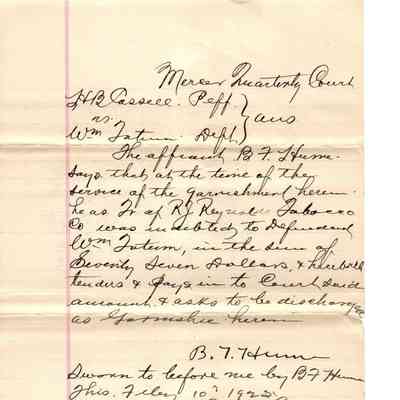 Mercer Quarterly Court
H B Cassell. Peff.
vs. } ans
Wm Tatum. Deft
The affiant B. F. Hume.
says that at the time of the
service of the Garnishment herein
he as Tr of R J Reynolds Tobacco
Co was indebted to Defendant
Wm Tatum, in the sum of
Seventy Seven Dollars, & herewith
tenders & pays in to Court said
amount & asks to be discharged
as Garnishee herein
B. F. Hume
Sworn to before me by B F Hume
This. Feby 10th 1925